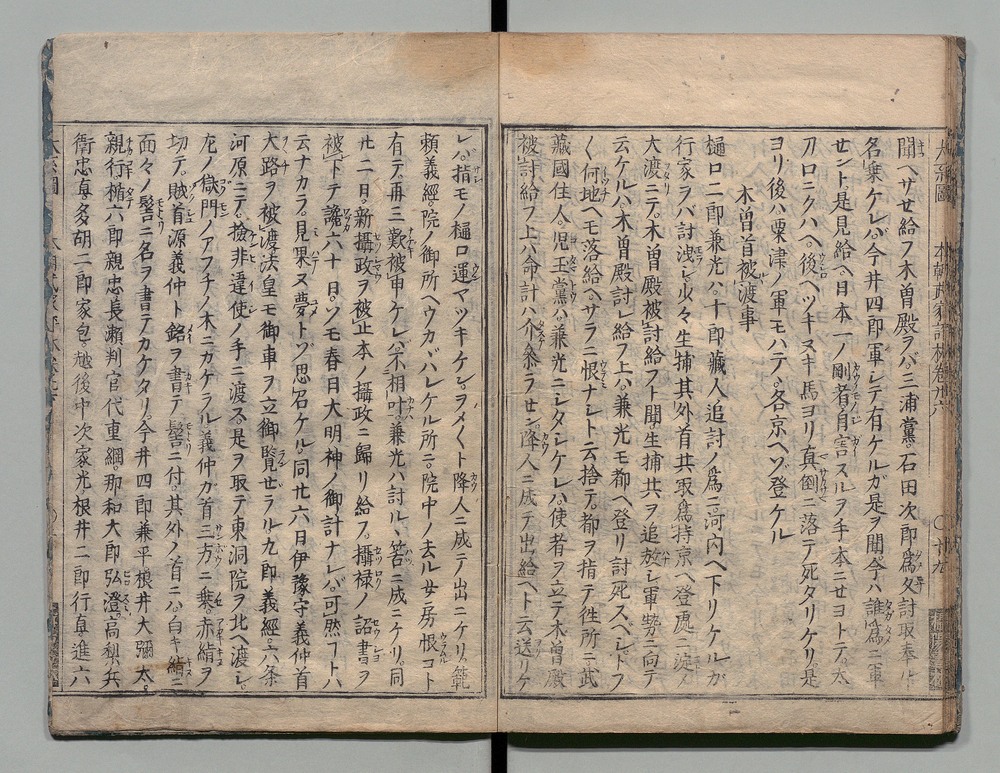 聞ヘサせ給フ木曽殿ヲバ三浦黨石田次郎爲久討取奉ルト
名乗ケレバ今井四郎軍シテ有ケルガ是ヲ聞今ハ誰爲ニ軍
せント是見給ヘ日本一ノ剛者自害スルヲ手本ニせヨトテ太
刀ロニクハヘ後ヘツキヌキ馬ヨリ真倒ニ落テ死タリケリ是
ヨリ後ハ栗津ノ軍モハテ各京ヘゾ登ケル
木曽首被渡事
樋口二郎兼光ハ十郎藏人追討ノ爲ニ河内ヘ下リケルガ
行家ヲバ討洩シ少々生捕其外首共取爲持京ヘ登處ニ淀ノ
大渡ニテ木曽殿被討給フト聞生捕共ヲ追放シ軍勢ニ向テ
云ケルハ木曽殿討レ給フ上ハ兼光モ都ヘ登リ討死スベレトフ
〱何地ヘモ落給ヘサラニ恨ナシト云捨テ都ヲ指テ徃所ニ武
藏國住人児玉黨ハ兼光ニシタシケレバ使者ヲ立テ木曽殿
被討給フ上ハ命計ハ介参ラせン降人ニ成テ出給ヘト云送リケ
レバ指モノ樋口運マツキケンヲメ〱ト降人ニ成テ出ニケリ範
頼義經院ノ御所ヘウカバレケル所ニ院中ノ去ル女房恨コト
有テ再三歎被申ケレバ不相叶兼光ハ討ルヽ筈ニ成ニケリ同
廿二日新攝政ヲ被止本ノ攝政ニ歸リ給フ攝禄ノ詔書ヲ
被下テ讒六十日ソモ春日大明神ノ御計ナレバ可然フトハ
云ナカラ見果ヌ夢トゾ思召ケル同廿六日伊豫守義仲首
大路ヲ被渡法皇モ御車ヲ立御覽ぜラル九郎義經六条
河原ニテ撿非違使ノ手ニ渡ス是ヲ取テ東洞院ヲ北ヘ渡シ
左ノ獄門ノアフチノ木ニカケラル義仲ガ首三方ニ乗赤絹ヲ
切テ賊首源義仲ト銘ヲ書テ髻ニ付其外ノ首ニハ白キ絹ニ
面々ノ髻ニ名ヲ書テカケタリ今井四郎兼平根井大彌太
親行楯六郎親忠長瀬判官代重綱那和大郎弘澄高梨兵
衛忠真多胡二郎家包越後中次家光根井二郎行真進六